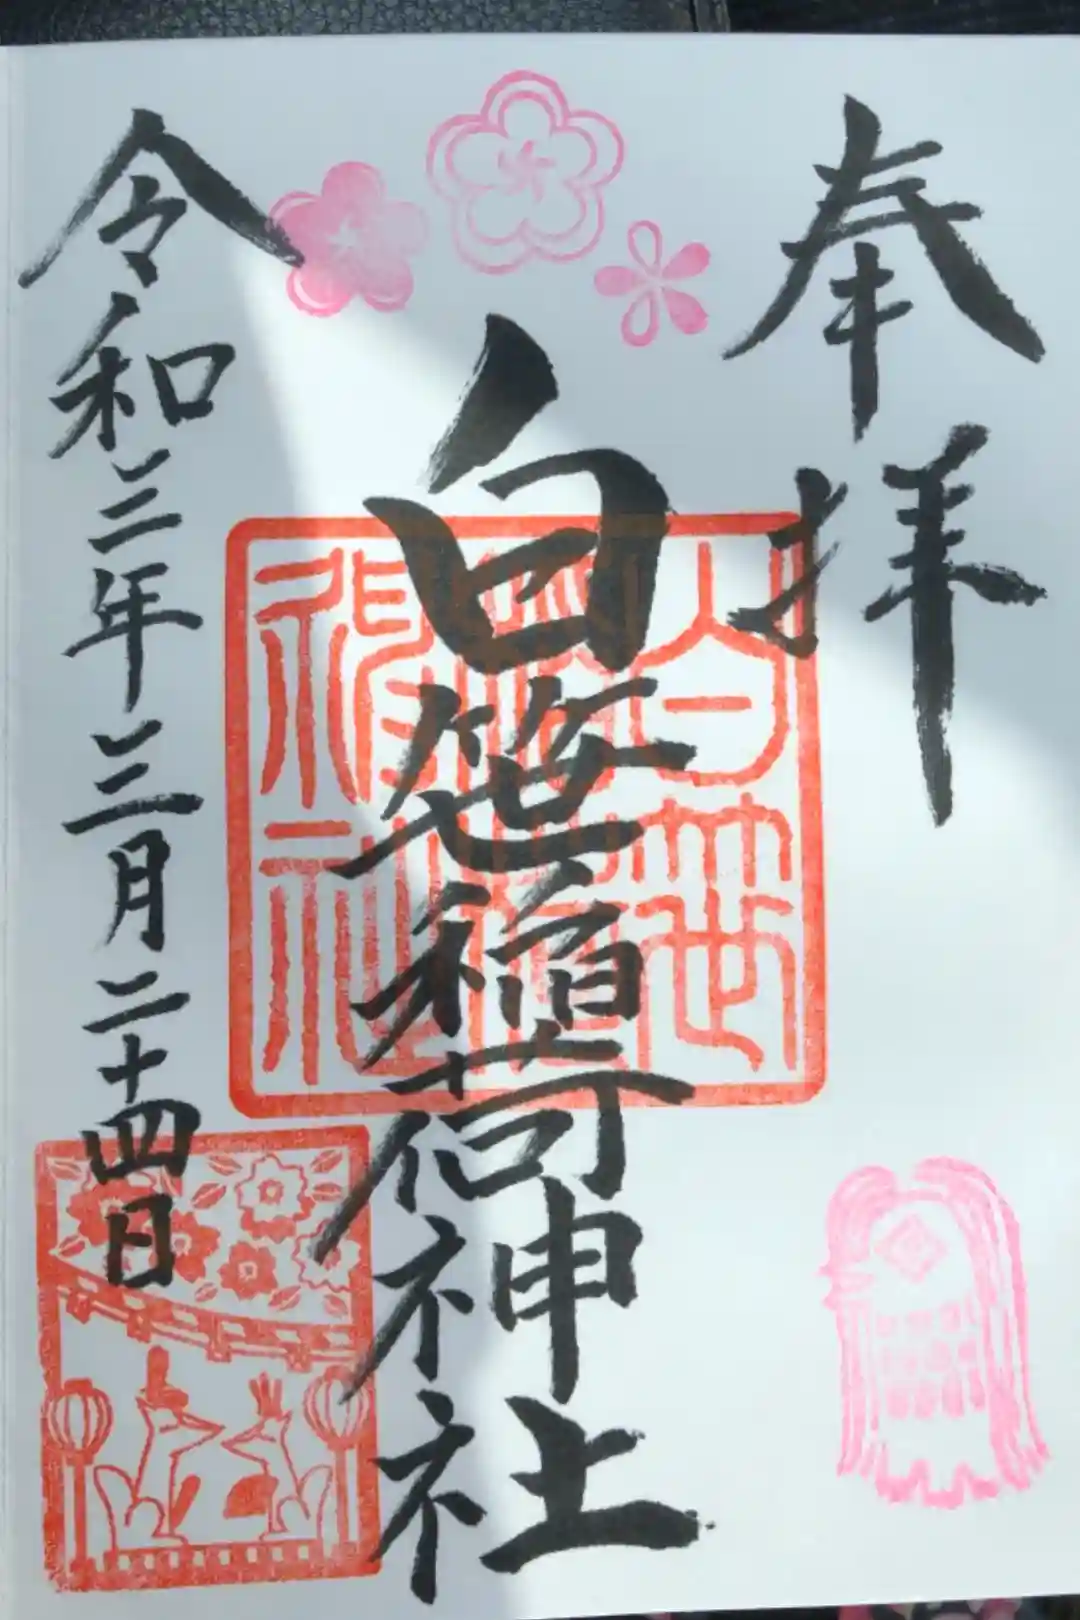 奉拝
白笹稲荷神社
白笹稲荷神社
令和三年三月二十四日